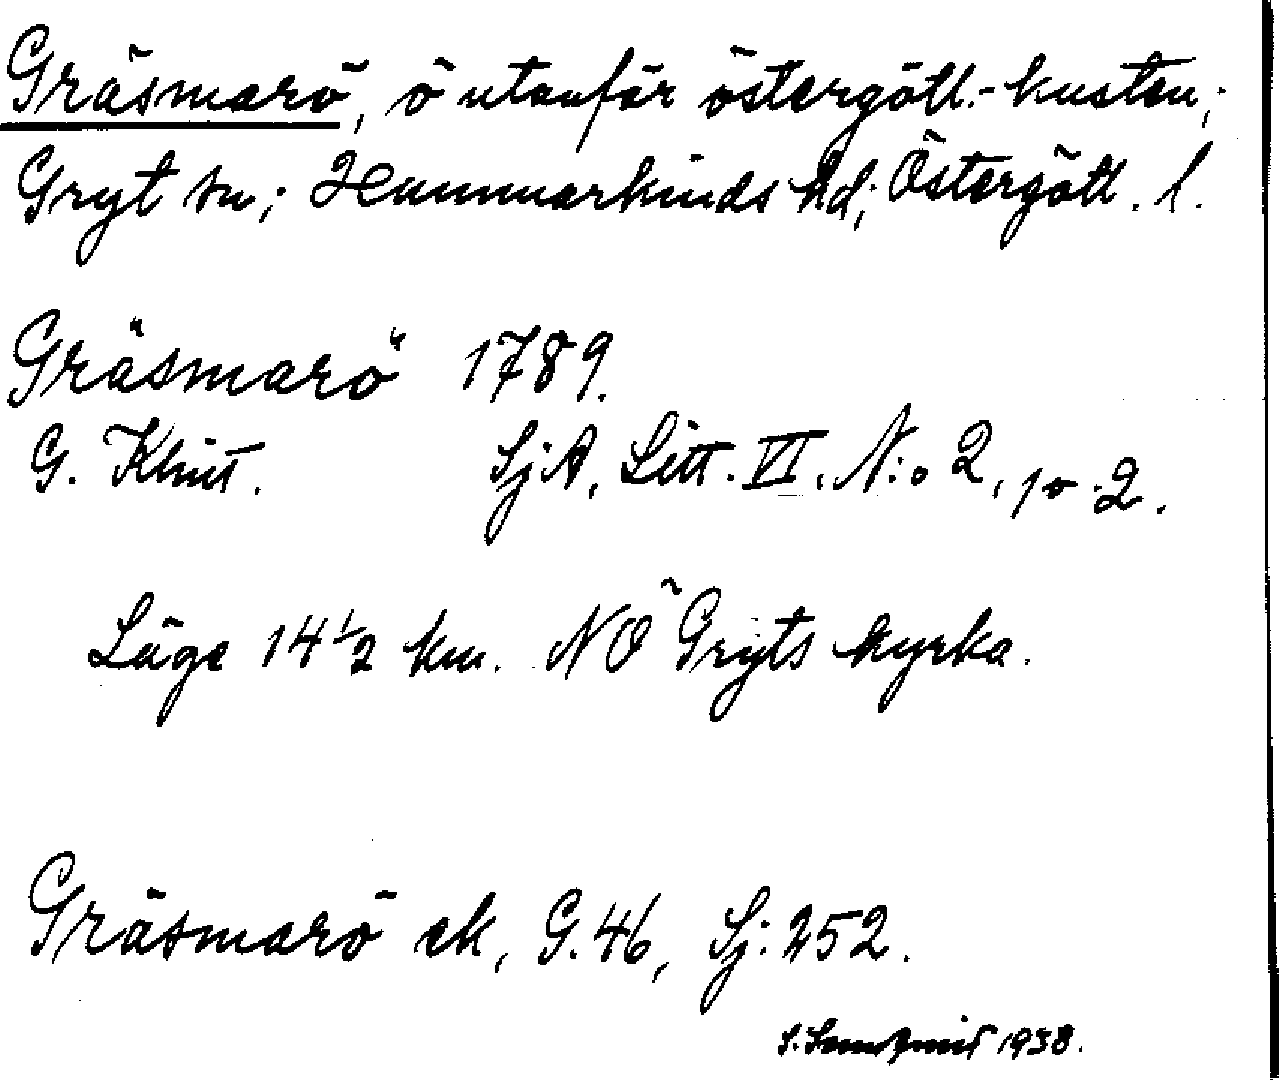 Gräsmarö, ö utanför östergötl.-kusten;
Gryt sn; Hammarkinds hd; Östergötl. l.
Gräsmarö 1789.
G. Klint. SjA, Litt. VI. N:o 2, p. 2.
Läge 14 1/2 km. NÖ Gryts kyrka.
Gräsmarö ek, G. 46, Sj: 252.
S. 1938.